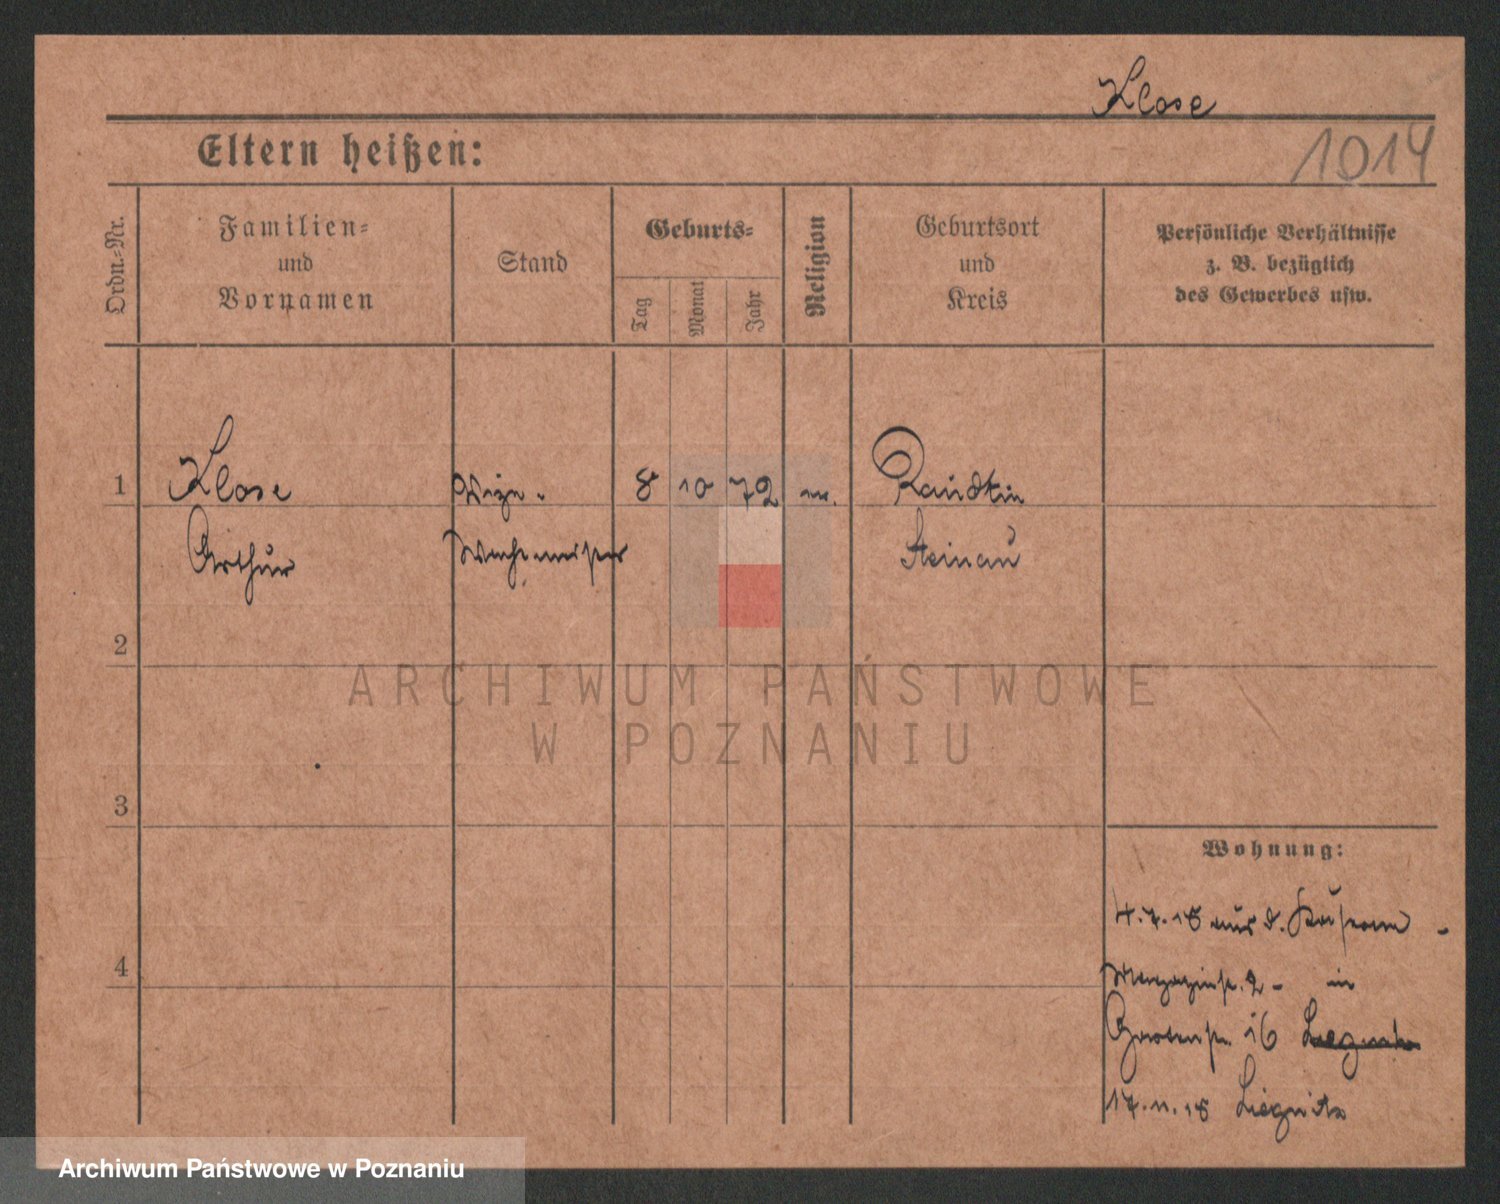 Klose
Eltern heißen:
1014
Ordn.=Nr.
Familien=
und
Vornamen
Stand
Geburts=
Tag
Monat
Jahr
Religion
Geburtsort
und
Kreis
Persönliche Verhältnisse
z. B. bezüglich
des Gewerbes usw.
1
Klose
Vize-
8
10
72
Raudten
Arthur
Wachtmeister
Steinau
2
3
4
Wohnung:
4.7.18 aus d. Kaserne -
Magazinstr. 2 - in
Gartenstr. 16
17.11.18 Liegnitz
ARCHIWUM PAŃSTWOWE
W POZNANIU
Archiwum Państwowe w Poznaniu